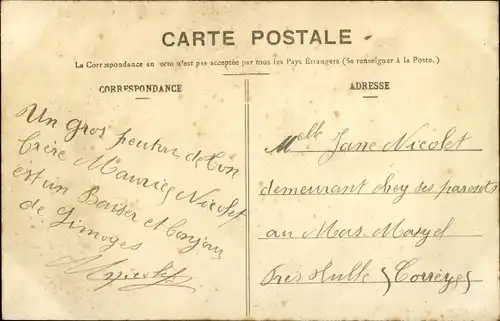 CARTE POSTALE
La Correspondance au recto n'est pas acceptée par tous les Pays Étrangers (Se renseigner à la Poste.)
CORRESPONDANCE
Un gros de ton
frère Maurice Nicolet
est un Baiser et bonjour
de Limoges
MNicolet
ADRESSE
Melle Jane Nicolet
demeurant chez ses parents
au Mas
Près (Corrèze)